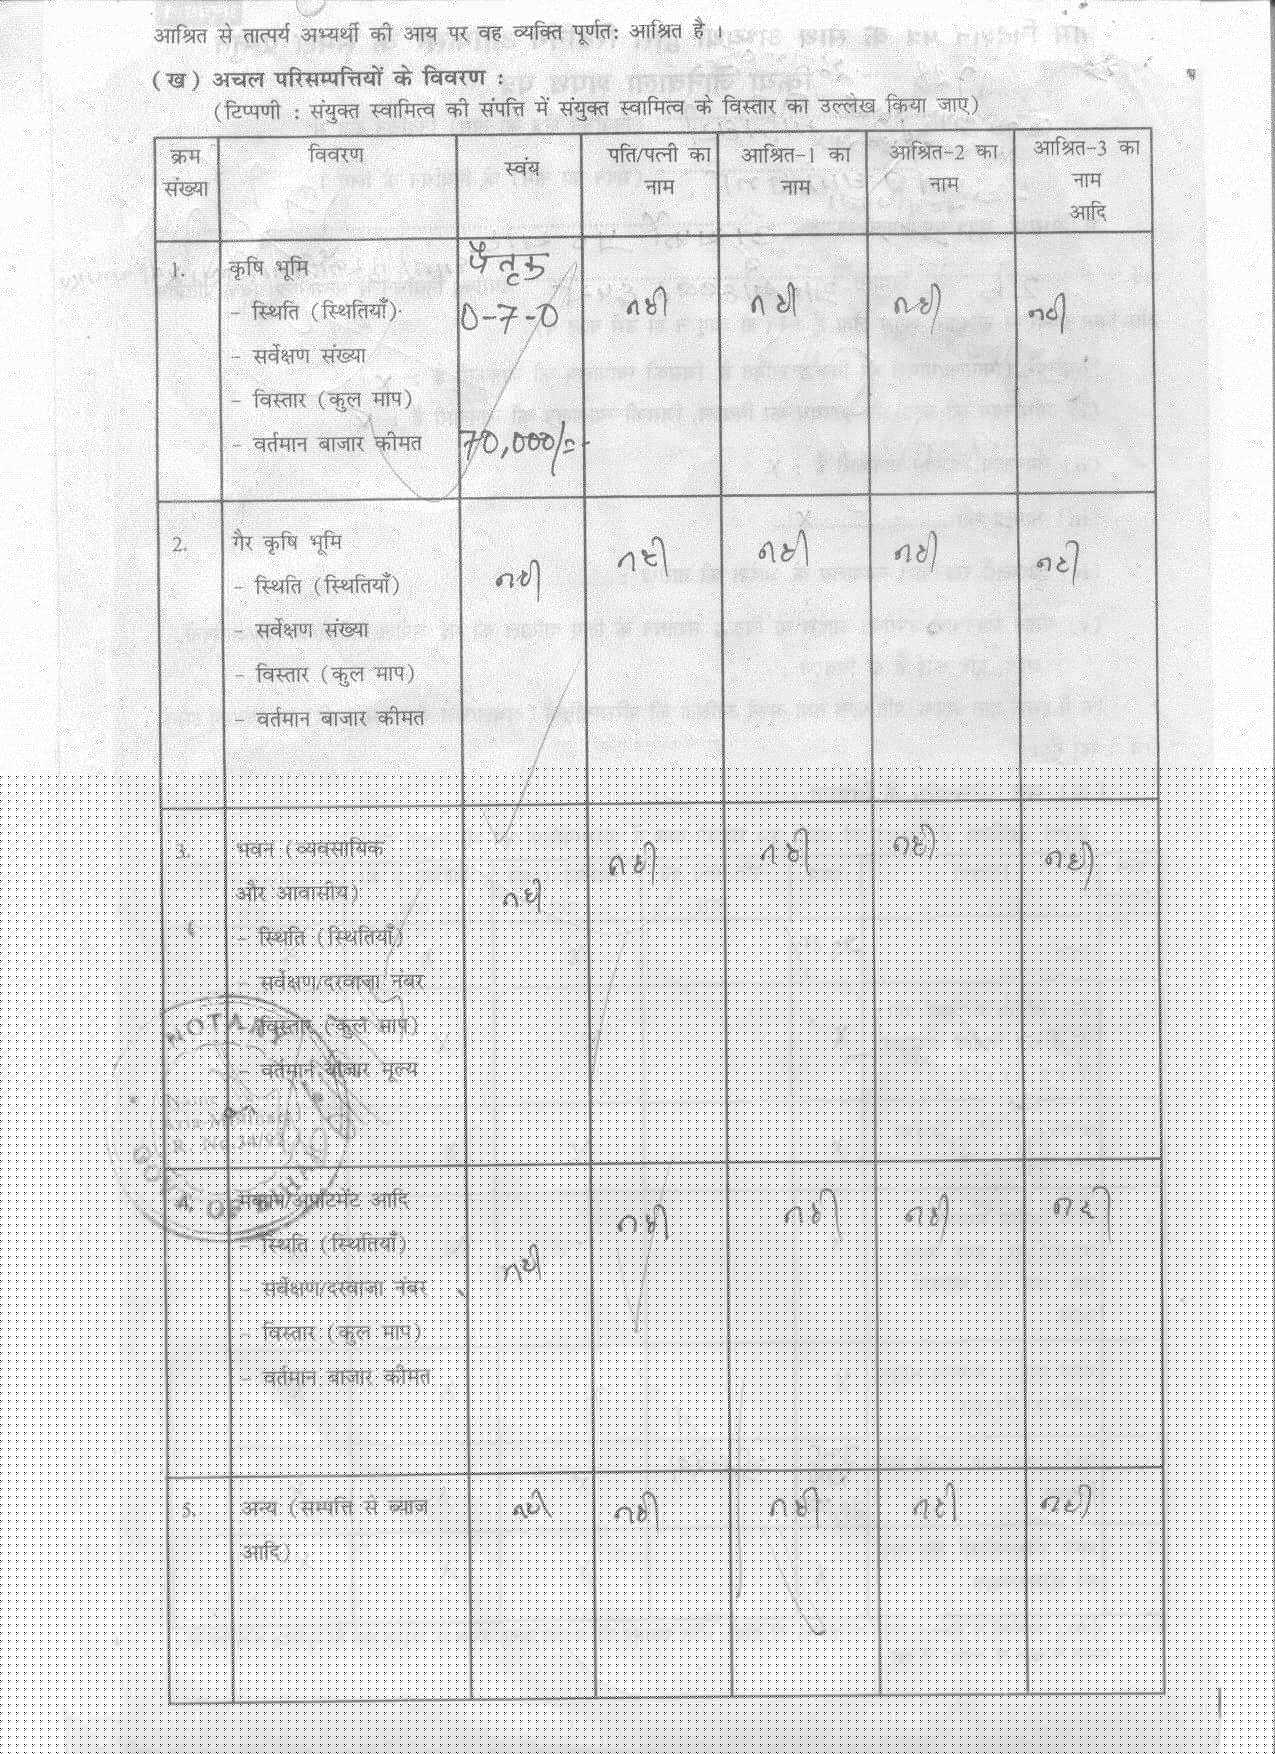 आश्रित से तात्पर्य अभ्यर्थी की आय पर वह व्यक्ति पूर्णत: आश्रित है ।
(ख) अचल परिसम्पत्तियों के विवरण :
(टिप्पणी : संयुक्त स्वामित्व की संपत्ति में संयुक्त स्वामित्व के विस्तार का उल्लेख किया जाए)
क्रम संख्या विवरण स्वंय पति/पत्नी का नाम आश्रित-1 का नाम आश्रित-2 का नाम आश्रित-3 का नाम आदि
1. कृषि भूमि पैतृक
- स्थिति (स्थितियाँ) 0-7-0 नही नही नही नही
- सर्वेक्षण संख्या
- विस्तार (कुल माप)
- वर्तमान बाजार कीमत 70,000/=
2. गैर कृषि भूमि नही नही नही नही
- स्थिति (स्थितियाँ) नही
- सर्वेक्षण संख्या
- विस्तार (कुल माप)
- वर्तमान बाजार कीमत
3. भवन (व्यवसायिक नही नही नही नही
और आवासीय) नही
- स्थिति (स्थितियाँ)
- सर्वेक्षण/दरवाजा नंबर
- विस्तार (कुल माप)
- वर्तमान बाजार मूल्य
NOTARY
R. No.
GOVT. OF BIHAR
4. मकान/अपार्टमेंट आदि नही नही नही नही
- स्थिति (स्थितियाँ) नही
- सर्वेक्षण/दरवाजा नंबर
- विस्तार (कुल माप)
- वर्तमान बाजार कीमत
5. अन्य (सम्पत्ति से ब्याज नही नही नही नही नही
आदि)